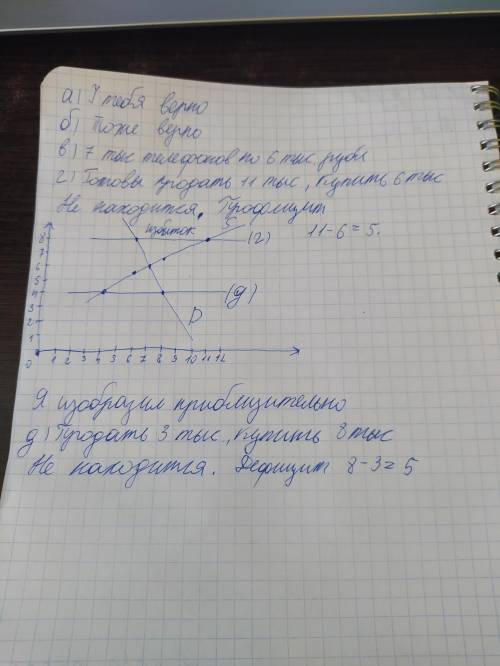 а) У тебя верно
б) Тоже верно
в) 7 тыс телефонов по 6 тыс рубл
г) Готовы продать 11 тыс, купить 6 тыс
Не находится, Профицит 11-6=5.
избыток S (г)
8
7
6
5
4 (д)
3
2
1
D
0 1 2 3 4 5 6 7 8 9 10 11 12
Я изобразил приблизительно
д) Продать 3 тыс, купить 8 тыс
Не находится. Дефицит 8-3=5